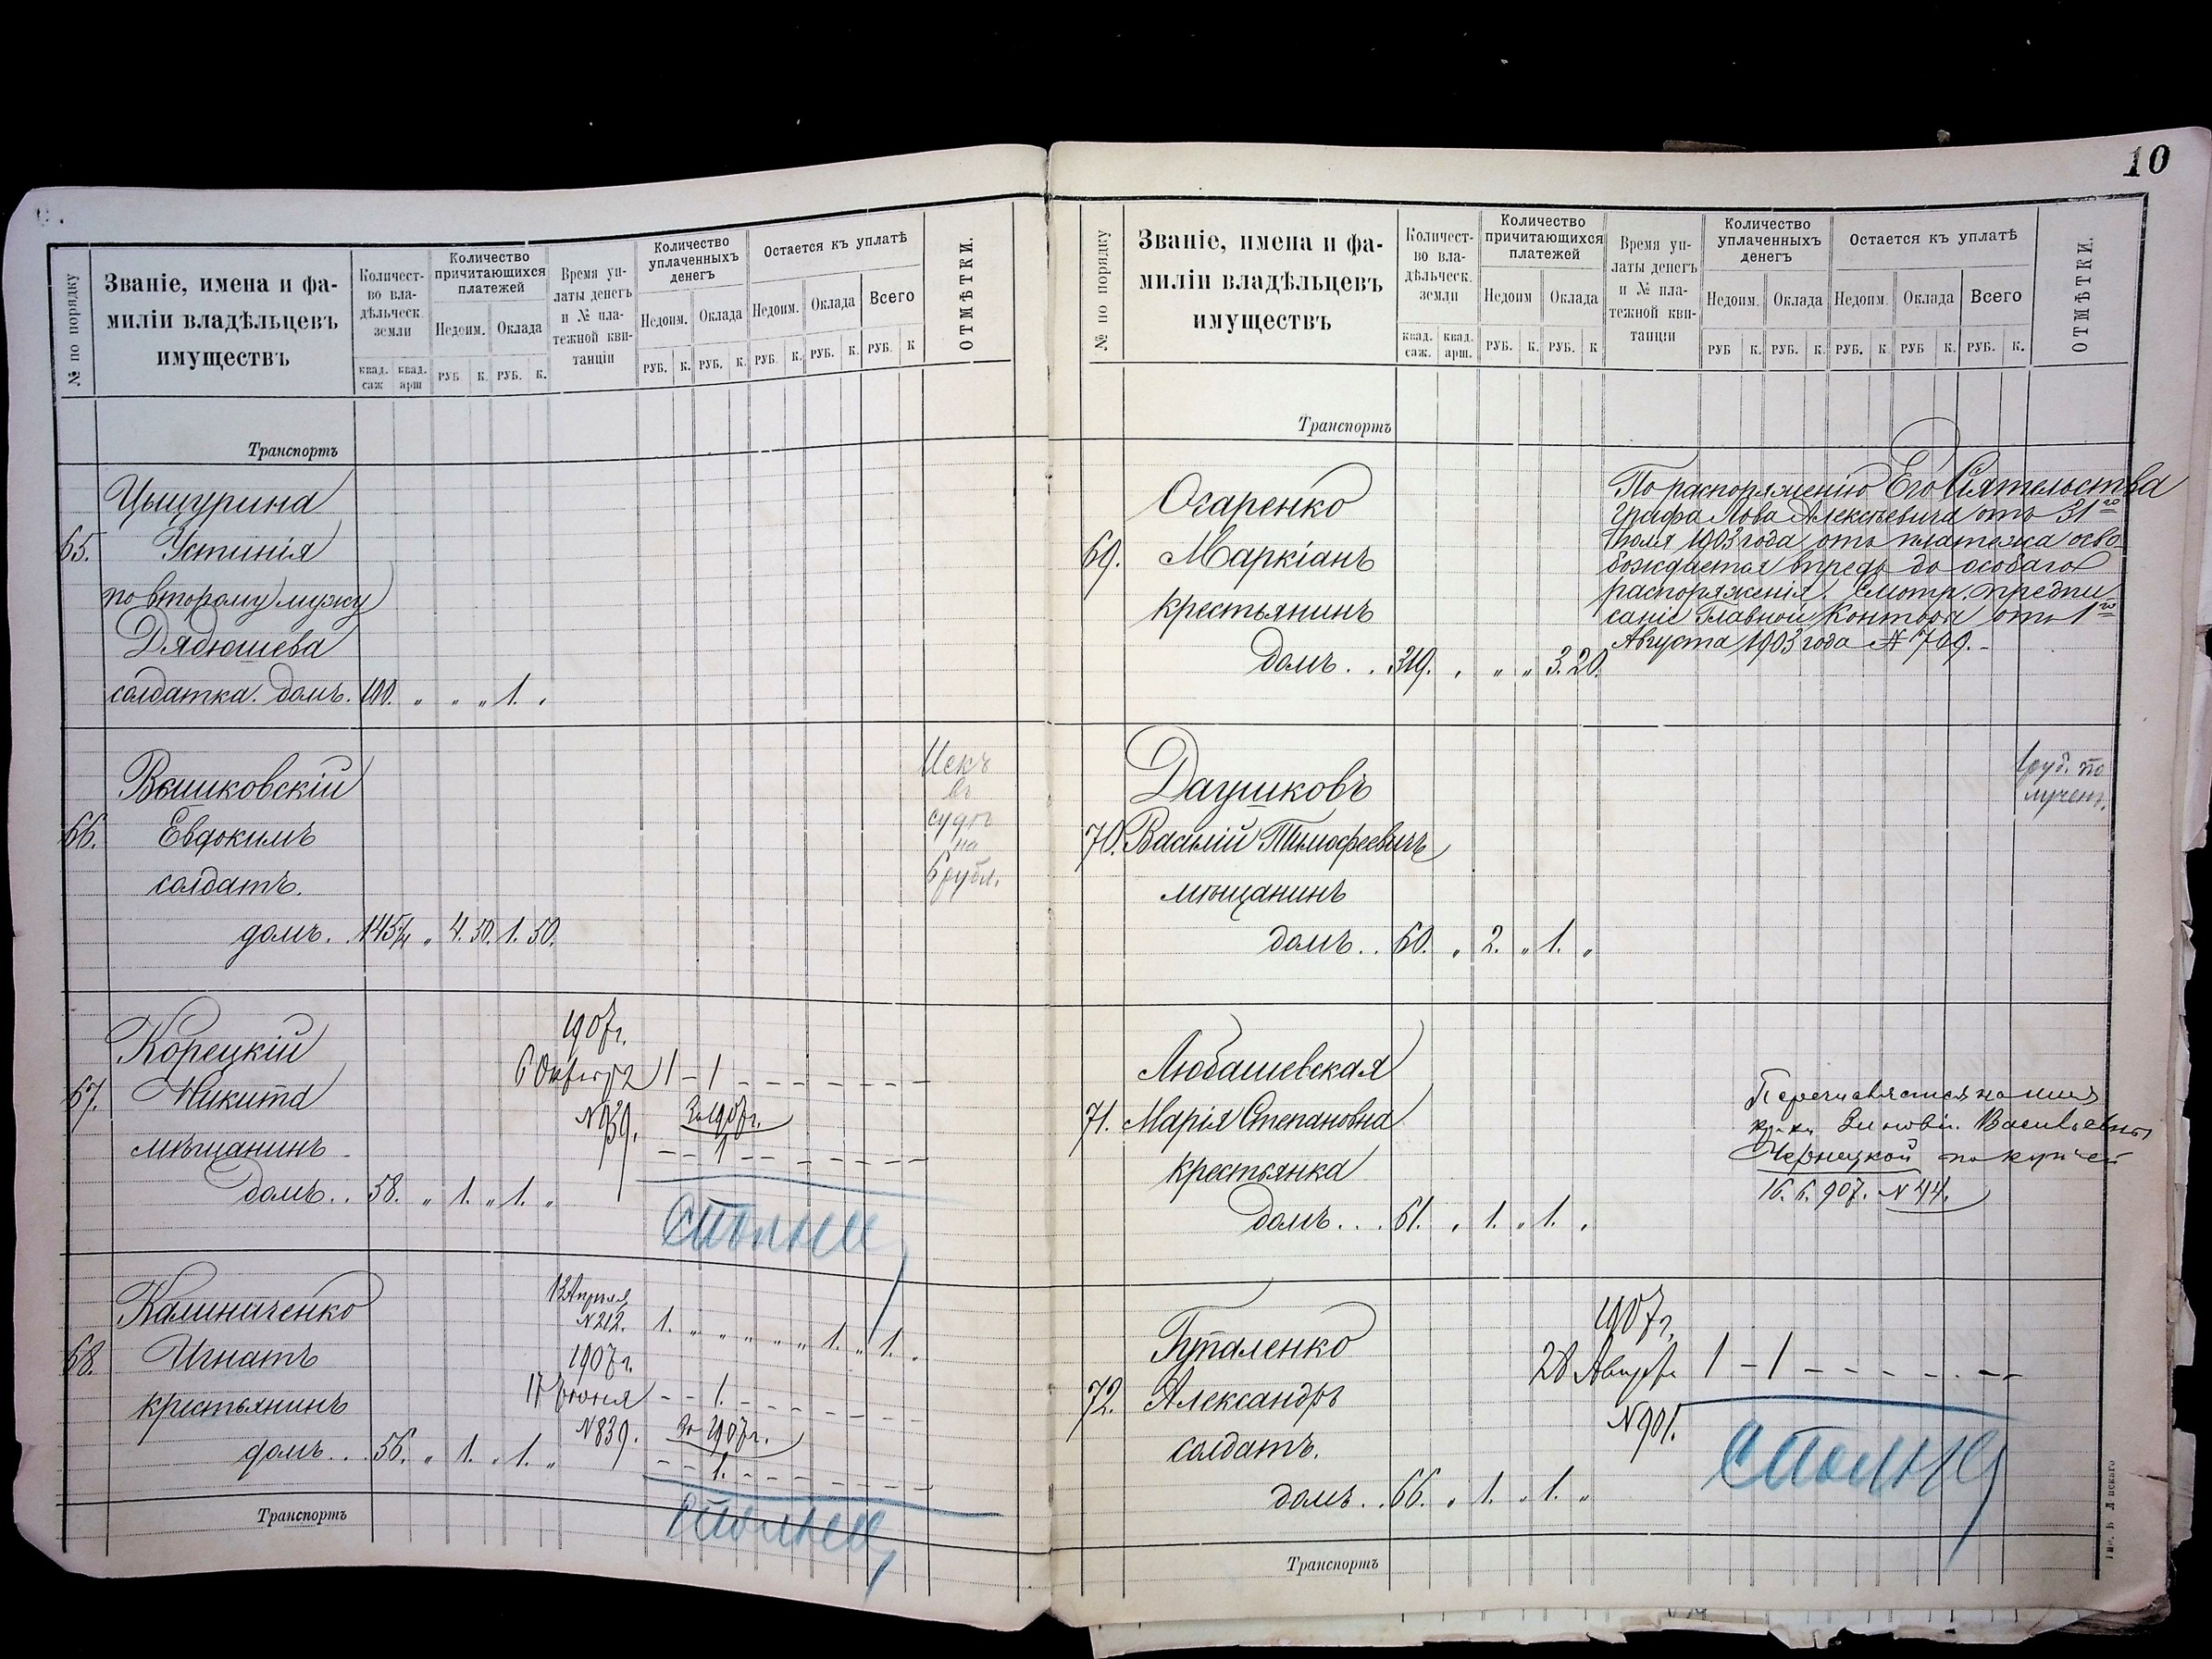 № по порядку
Званіе, имена и фа-
миліи владѣльцевъ
имуществъ
Количест-
во вла-
дѣльческ.
земли
квад. саж
квад. арш
Количество
причитающихся
платежей
Недоим. Оклада
РУБ К. РУБ. К.
Время уп-
латы денегъ
и № пла-
тежной кви-
танціи
Количество
уплаченныхъ
денегъ
Недоим. Оклада
РУБ. К. РУБ. К.
Остается къ уплатѣ
Недоим. Оклада Всего
РУБ. К. РУБ. К. РУБ. К
ОТМѢТКИ.
Транспортъ
Цыцурина
65. Устинія
по второму мужу
Дядюшева
солдатка. домъ. 100. „ „ „ 1. „
Вышковскій
66. Евдокимъ
солдатъ.
домъ. 145 „ 4. 50. 1. 50.
Искъ
въ
судѣ
на
6 рубл.
Корецкій
67. Никита
мѣщанинъ
домъ.. 58. „ 1. „ 1. „
1907г.
6 Октября 1 – 1 – – – – – – –
№939. За 1907г.
– – 1 – – – – – – –
Калиниченко
68. Игнатъ
крестьянинъ
домъ... 56. „ 1. „ 1. „
13 Апрѣля
№212. 1. „ „ „ „ „ 1. „ 1. „
1907г.
17 Іюня – – 1. – – – – – – –
№839. За 1907г.
– – 1. – – – – – – –
Транспортъ
10
№ по порядку
Званіе, имена и фа-
миліи владѣльцевъ
имуществъ
Количест-
во вла-
дѣльческ.
земли
квад. саж.
квад. арш.
Количество
причитающихся
платежей
Недоим Оклада
РУБ. К. РУБ. К
Время уп-
латы денегъ
и № пла-
тежной кви-
танціи
Количество
уплаченныхъ
денегъ
Недоим. Оклада
РУБ К. РУБ. К.
Остается къ уплатѣ
Недоим. Оклада Всего
РУБ. К РУБ К. РУБ. К.
ОТМѢТКИ.
Транспортъ
Огаренко
69. Маркіанъ
крестьянинъ
домъ.. 319. „ „ „ 3. 20.
По распоряженію Его Сіятельства
Графа Льва Алексѣевича отъ 31го
Іюля 1903 года отъ платежа осво-
бождается впредь до особаго
распоряженія. Смотр. предпи
саніе Главной Конторы отъ 1го
Августа 1903 года № 709.-
Дацшковъ
70. Василій Тимофеевичъ
мѣщанинъ
домъ.. 60. „ 2. „ 1. „
руб. по
лучен.
Любашевская
71. Марія Степановна
крестьянка
домъ... 61. „ 1. „ 1. „
Перечисляется на имя
Зиновіи Васильевны
Черницкой по купчей
16. 6. 907. №44.
Гуталенко
72. Александръ
солдатъ.
домъ.. 66. „ 1. „ 1. „
1907г.
28 Августа 1 – 1 – – – – – – –
№901.
Транспортъ